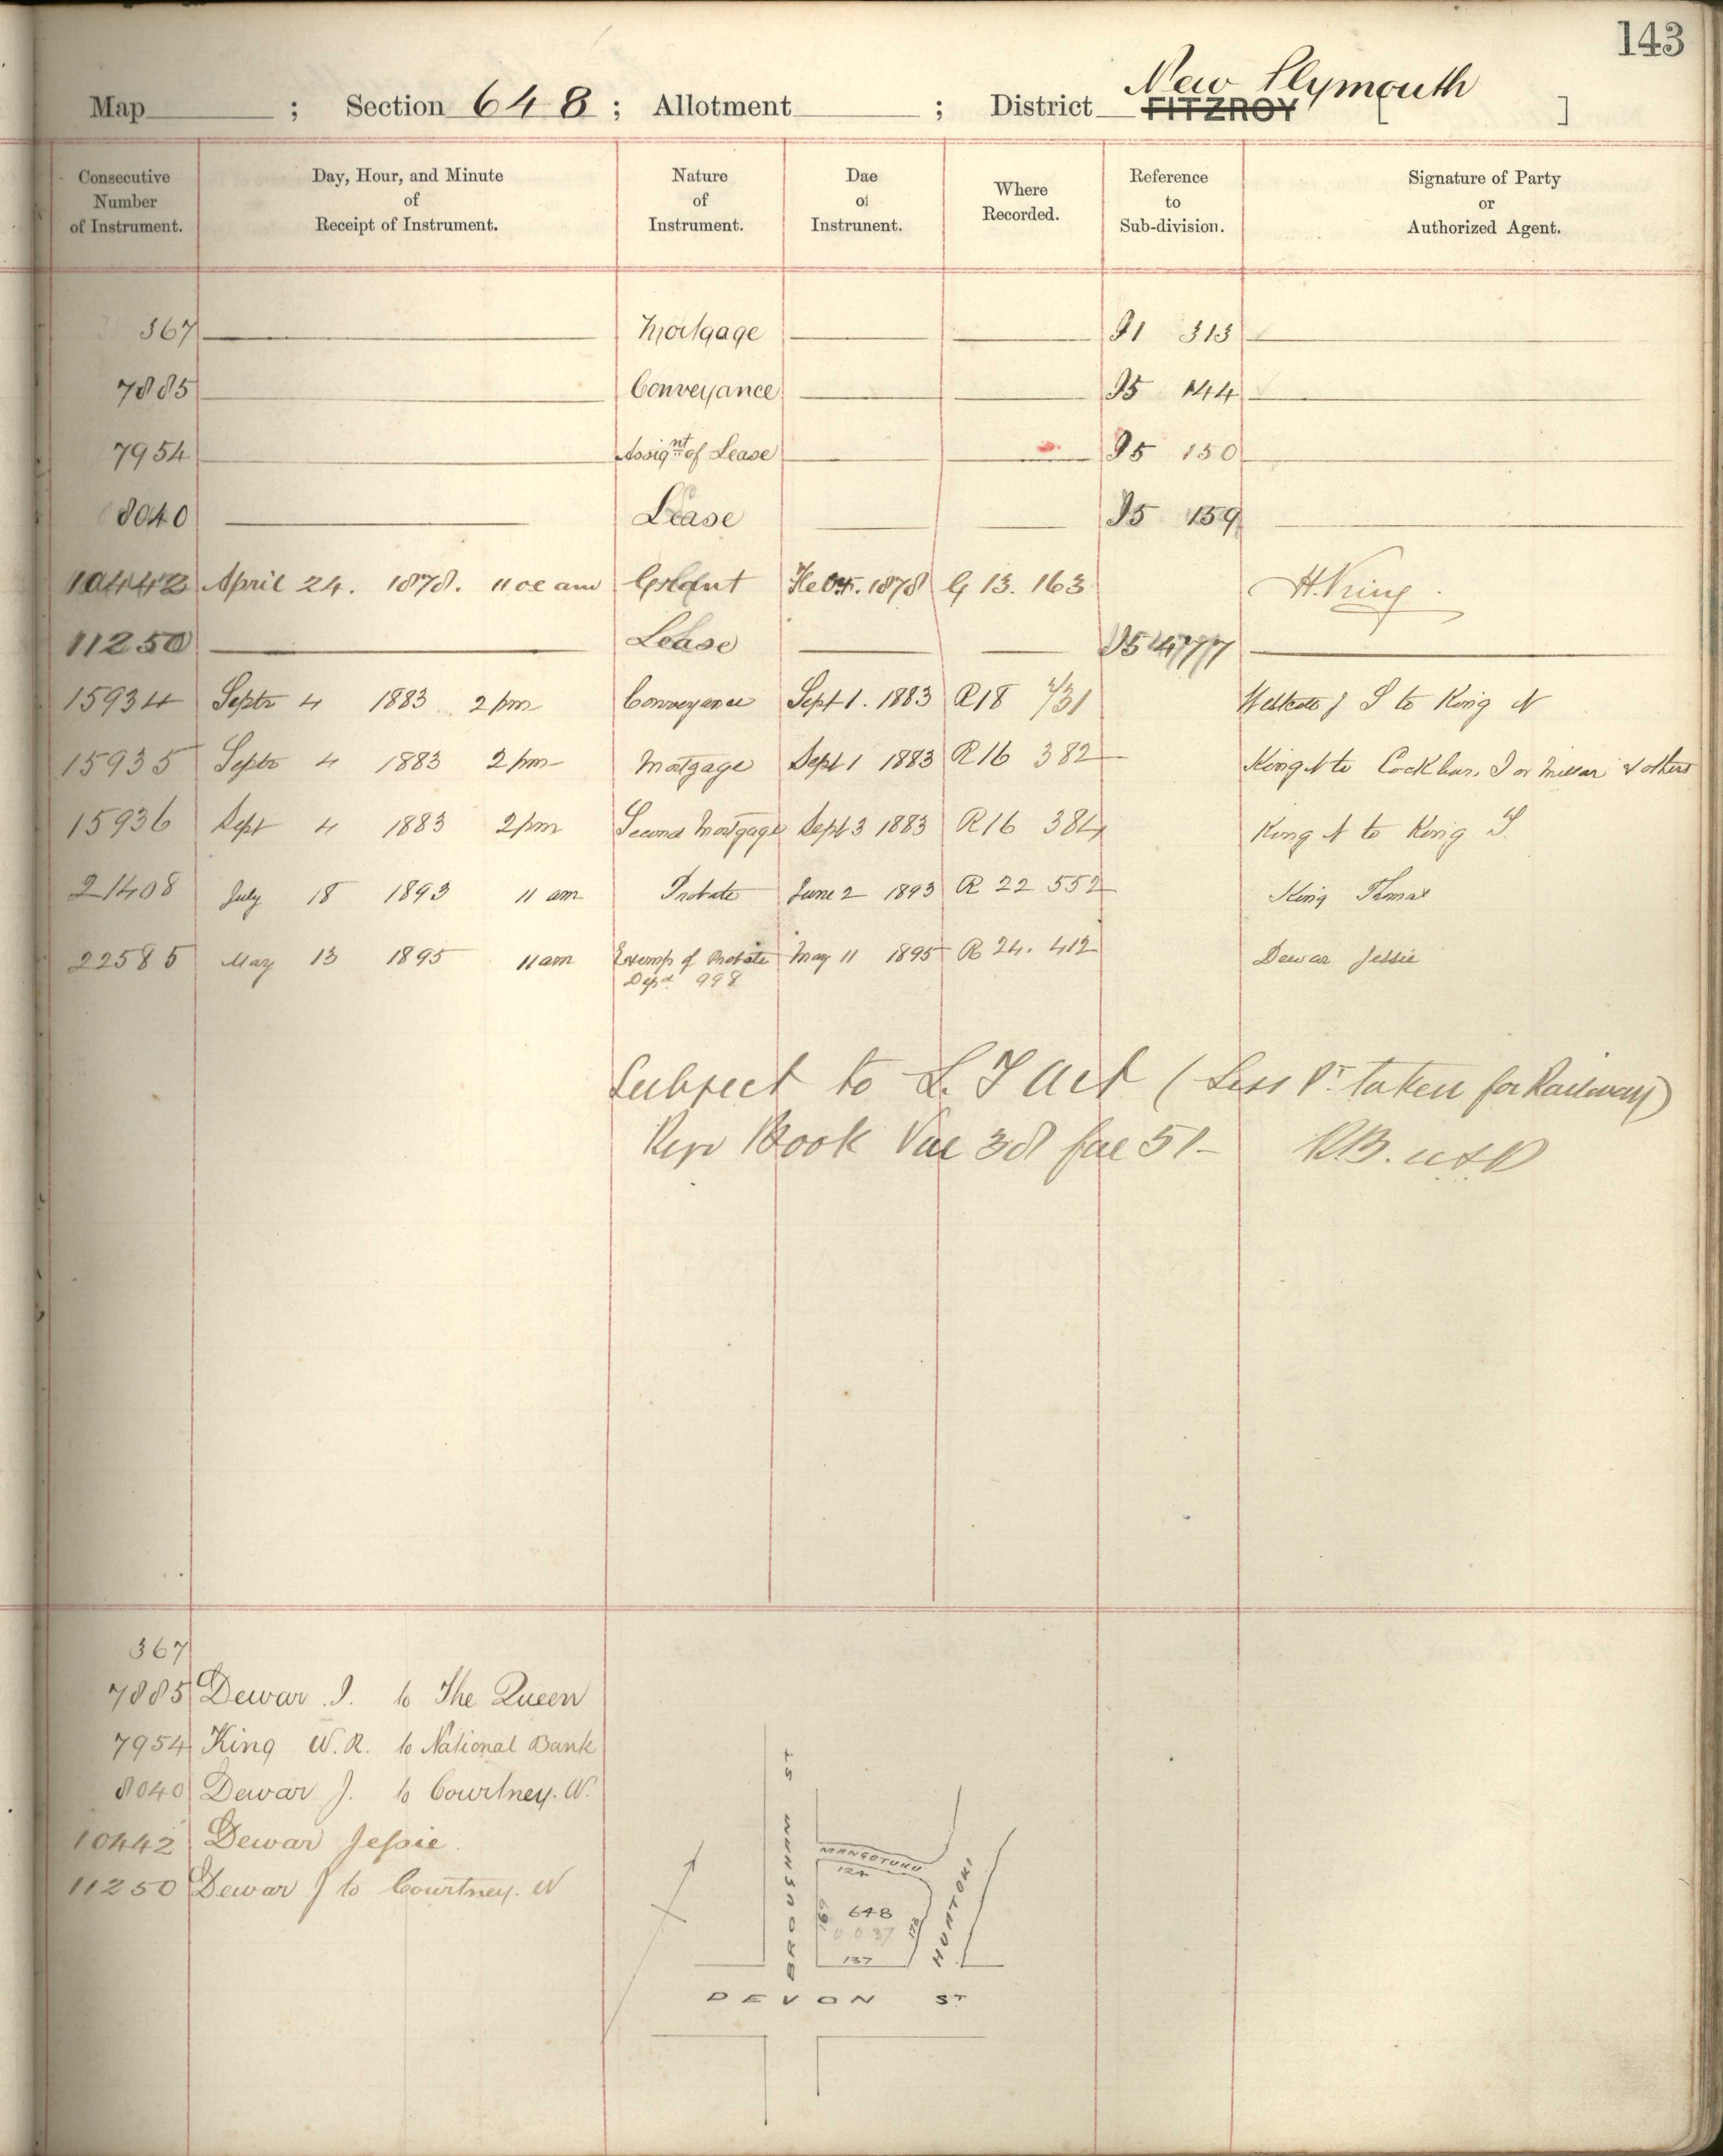 143
Map ; Section 648 ; Allotment ; District FITZROY New Plymouth ]
Consecutive Number of Instrument. Day, Hour, and Minute of Receipt of Instrument. Nature of Instrument. Dae of Instrunent. Where Recorded. Reference to Sub-division. Signature of Party or Authorized Agent.
367 Mortgage 313
7885 Conveyance 144
7954 Assignt of Lease 150
8040 Lease 159
10442 April 24. 1878. 11 oc am 1878 G 13. 163 H. King
11250 Lease
15934 Septr 4 1883 2 pm Conveyance Sept 1. 1883 R18 to King N
15935 Septr 4 1883 2 pm Mortgage Sept 1 1883 R16 382 King N to & others
15936 Sept 4 1883 2 pm Second Mortgage Sept 3 1883 R16 384 King N to King T
21408 July 18 1893 11 am Probate June 2 1893 R 22 552 King Thomas
22585 May 13 1895 11 am Exemp of Probate May 11 1895 R 24. 412 Dewar Jessie
Depd 998
Subject to L T Act (Less Pt taken for Railway)
Book Vol 38 fol 51
367
7885 Dewar J. to The Queen
7954 King W. R. to National Bank
8040 Dewar J. to Courtney. W.
10442 Dewar Jessie
11250 Dewar J to Courtney. W
BROUGHAM ST
MANGOTUKU
124
HUATOKI
648
0 0 37
137
DEVON ST